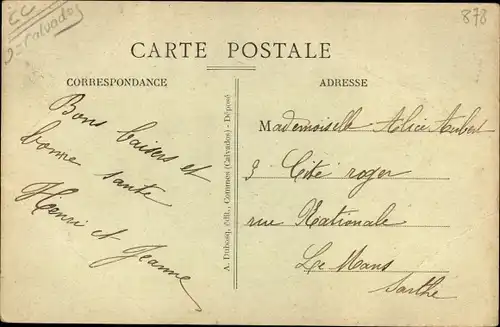 CC
D=Calvados
878
CARTE POSTALE
CORRESPONDANCE
ADRESSE
Bons baisers et
bonne santé
Henri et Jeanne
A. Dubosq, édit., Commes (Calvados) - Déposé
Mademoiselle Alice Aubert
9 Cité roger
rue Nationale
Le Mans
Sarthe